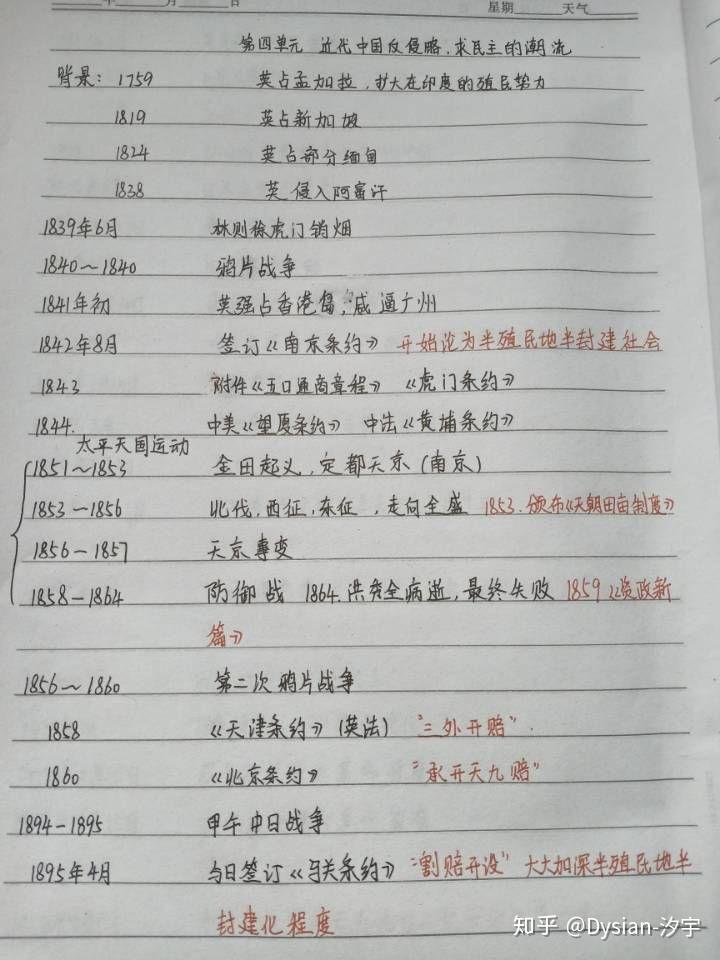 年 月 日 星期 天气
第四单元 近代中国反侵略,求民主的潮流
背景: 1759 英占孟加拉,扩大在印度的殖民势力
1819 英占新加坡
1824 英占部分缅甸
1838 英侵入阿富汗
1839年6月 林则徐虎门销烟
1840~1840 鸦片战争
1841年初 英强占香港岛,威逼广州
1842年8月 签订《南京条约》 开始沦为半殖民地半封建社会
1843 附件《五口通商章程》 《虎门条约》
1844. 中美《望厦条约》 中法《黄埔条约》
太平天国运动
1851~1853 金田起义,定都天京(南京)
1853—1856 北伐,西征,东征,走向全盛 1853.颁布《天朝田亩制度》
1856—1857 天京事变
1858—1864 防御战 1864.洪秀全病逝,最终失败 1859《资政新
篇》
1856~1860 第二次鸦片战争
1858 《天津条约》(英法) "三外开赔"
1860 《北京条约》 "承开天九赔"
1894-1895 甲午中日战争
1895年4月 与日签订《马关条约》 "割赔开设" 大大加深半殖民地半
封建化程度
知乎 @Dysian-汐宇